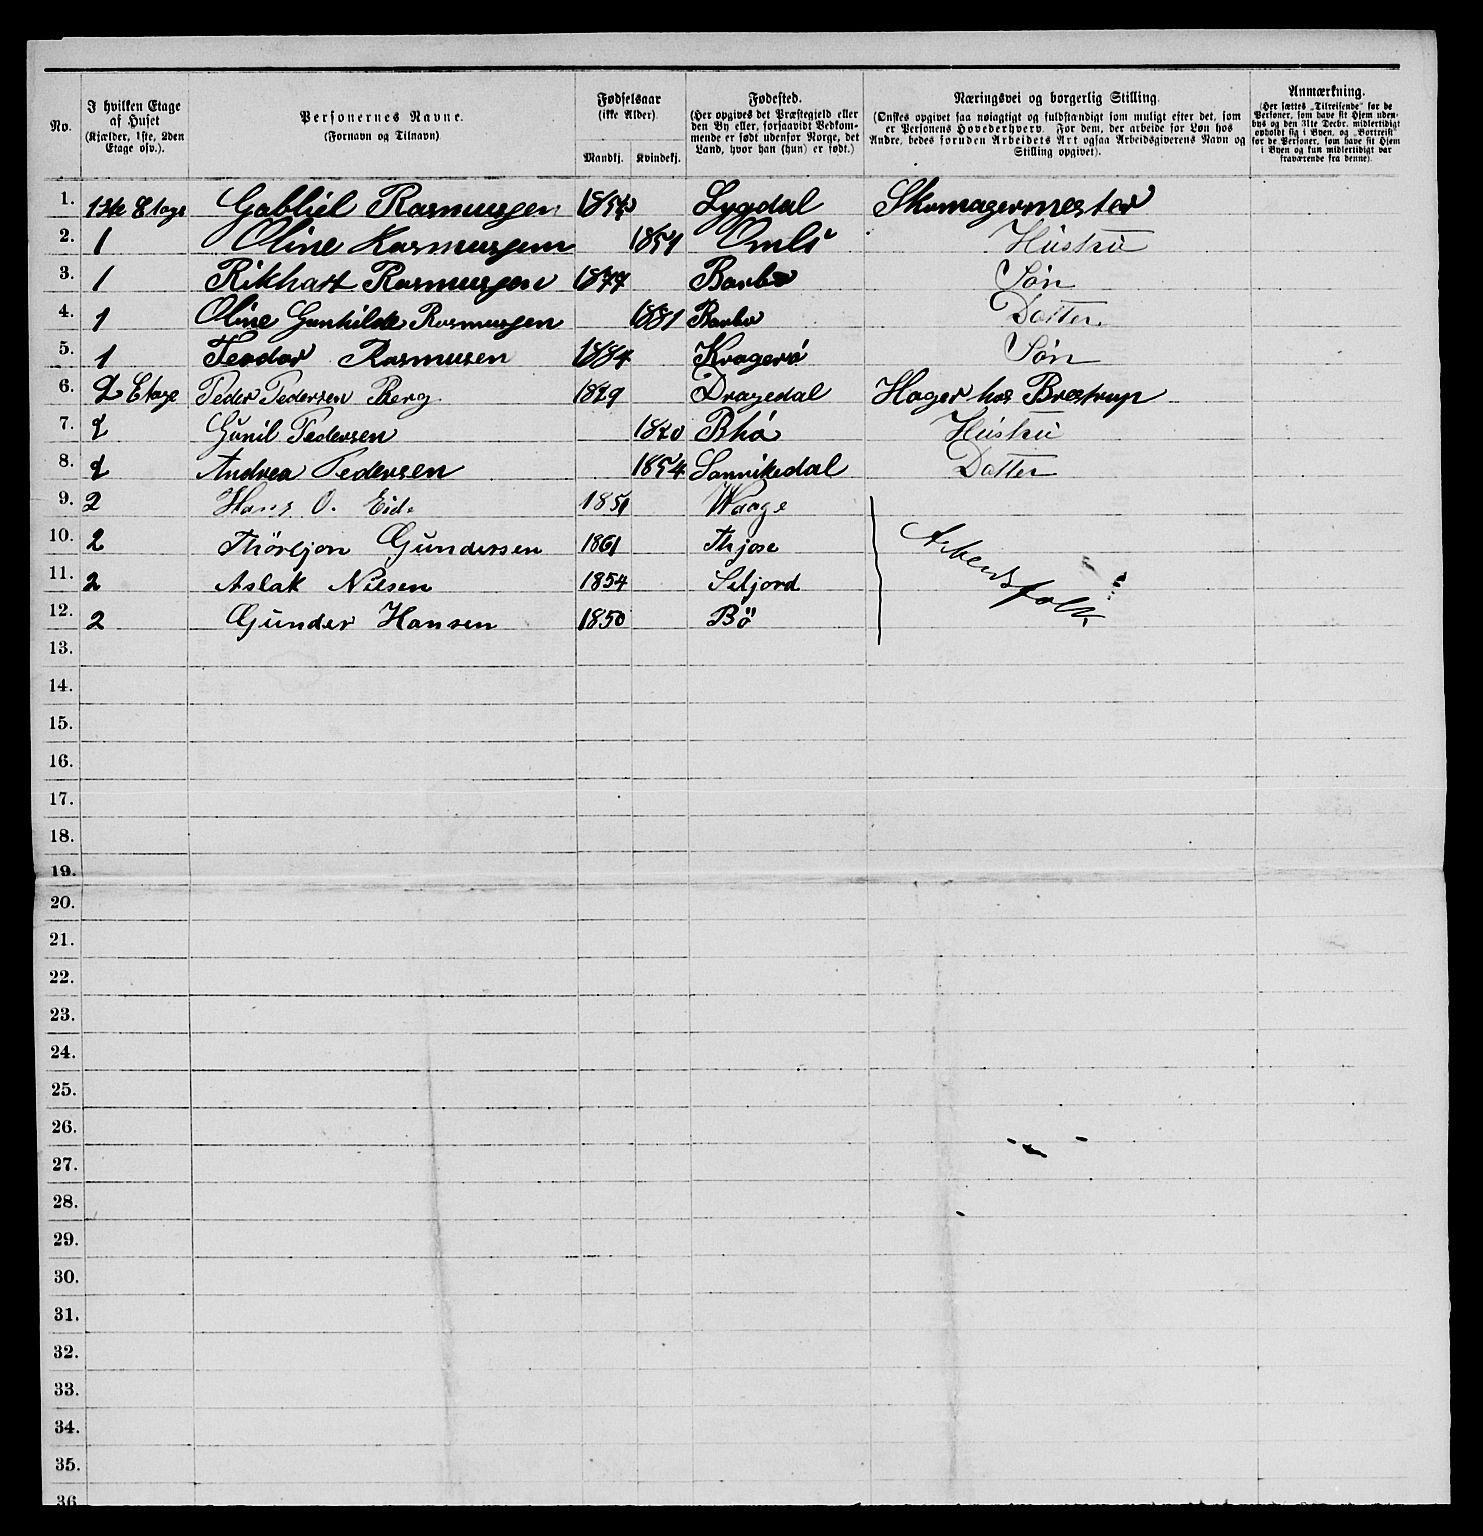 No.
I hvilken Etage af Huset (Kjælder, 1ste, 2den Etage osv.).
Personernes Navne. (Fornavn og Tilnavn).
Fødselsaar (ikke Alder).
Mandkj. Kvindekj.
Fødested. (Her opgives det Præstegjeld eller den By eller, forsaavidt Vedkommende er født udenfor Norge, det Land, hvor han (hun) er født.)
Næringsvei og borgerlig Stilling. (Ønskes opgivet saa nøiagtigt og fuldstændigt som muligt efter det, som er Personens Hovederhverv. For dem, der arbeide for Løn hos Andre, bedes foruden Arbeidets Art ogsaa Arbeidsgiverens Navn og Stilling opgivet).
Anmærkning. (Her sættes „Tilreisende" for de Personer, som have sit Hjem udenbys og den 31te Decbr. midlertidigt opholdt sig i Byen, og „Bortreist" for de Personer, som have sit Hjem i Byen og kun midlertidigt var fraværende fra denne).
1. 1ste Etage Gabliel Rasmusgen Lygdal Skomagermester
2. 1 Oline Rasmusgen 1851 Omli Hustru
3. 1 Rikhart Rasmusgen 1877 Barbo Søn
4. 1 Oline Gunhilde Rasmusgen 1881 Barbo Datter
5. 1 Teodor Rasmusen 1884 Kragerö Søn
6. 2 Etage Peder Pedersen Berg 1829 Dragedal Hager hos Brøstrup
7. 2 Gunil Pedersen 1820 Bhö Hustru
8. 2 Andrea Pedersen 1854 Sannikedal Datter
9. 2 Hans O. Eide 1851 Waage
10. 2 Thörbjøn Gundersen 1861 Thjøse Arbeidsfolk
11. 2 Aslak Nilsen 1854 Siljord
12. 2 Gunder Hansen 1850 Bö
13.
14.
15.
16.
17.
18.
19.
20.
21.
22.
23.
24.
25.
26.
27.
28.
29.
30.
31.
32.
33.
34.
35.
36